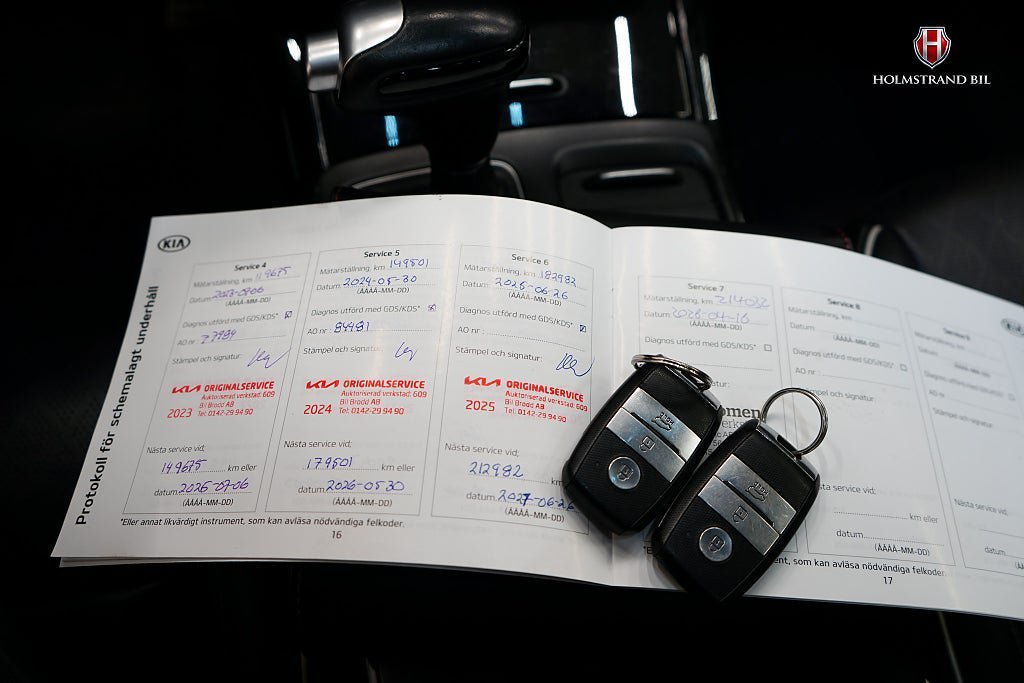 H
HOLMSTRAND BIL
KIA
Protokoll för schemalagt underhåll
Service 4
Mätarställning, km 119675
Datum
(ÅÅÅÅ-MM-DD)
Diagnos utförd med GDS/KDS*
AO nr: 27984
Stämpel och signatur:
KIA ORIGINALSERVICE
Auktoriserad verkstad: 609
Bil Brodd AB
2023 Tel: 0142-29 94 90
Nästa service vid;
149675 km eller
datum 2025-07-06
(ÅÅÅÅ-MM-DD)
Service 5
Mätarställning, km 149801
Datum 2024-05-30
(ÅÅÅÅ-MM-DD)
Diagnos utförd med GDS/KDS*
AO nr: 84981
Stämpel och signatur:
KIA ORIGINALSERVICE
Auktoriserad verkstad: 609
Bil Brodd AB
2024 Tel: 0142-29 94 90
Nästa service vid;
179801 km eller
datum 2026-05-30
(ÅÅÅÅ-MM-DD)
Service 6
Mätarställning, km 182982
Datum 2025-06-26
(ÅÅÅÅ-MM-DD)
Diagnos utförd med GDS/KDS*
AO nr :
Stämpel och signatur:
KIA ORIGINALSERVICE
Auktoriserad verkstad: 609
Bil Brodd AB
2025 Tel: 0142-29 94 90
Nästa service vid;
212982 km eller
datum 2027-06-26
(ÅÅÅÅ-MM-DD)
*Eller annat likvärdigt instrument, som kan avläsa nödvändiga felkoder.
16
Service 7
Mätarställning, km
Datum 2026-04-16
(ÅÅÅÅ-MM-DD)
Diagnos utförd med GDS/KDS*
AO nr :
Service 8
Mätarställning, km
Datum
(ÅÅÅÅ-MM-DD)
Diagnos utförd med GDS/KDS*
AO nr :
Stämpel och signatur:
service vid;
km eller
datum
(ÅÅÅÅ-MM-DD)
Mätarställning, km
Datum
(ÅÅÅÅ-MM-DD)
Diagnos utförd med
AO nr :
Stämpel och signatur:
Nästa service
datum
(ÅÅÅÅ-MM-DD)
som kan avläsa nödvändiga felkoder
17